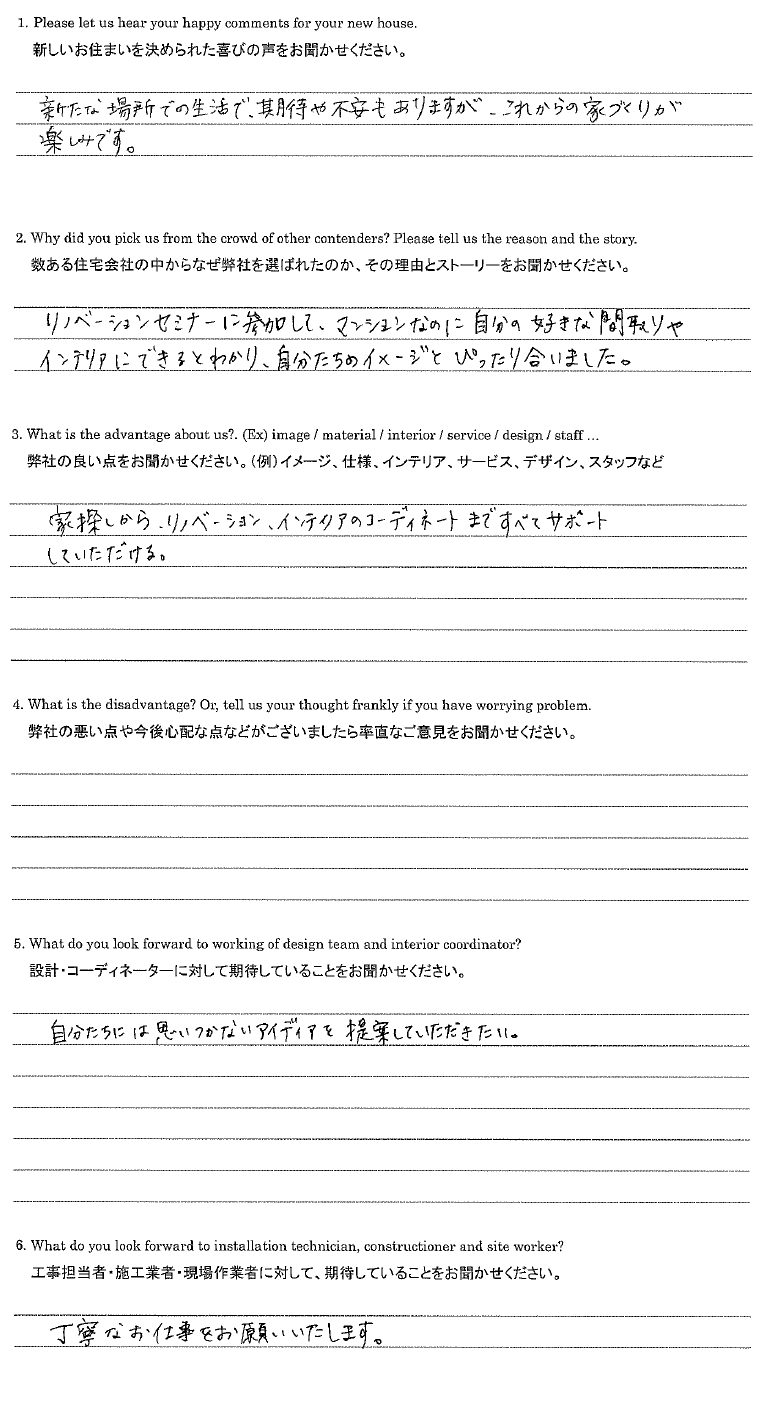 1. Please let us hear your happy comments for your new house.
新しいお住まいを決められた喜びの声をお聞かせください。
新たな場所での生活で、期待や不安もありますが、これからの家づくりが
楽しみです。
2. Why did you pick us from the crowd of other contenders? Please tell us the reason and the story.
数ある住宅会社の中からなぜ弊社を選ばれたのか、その理由とストーリーをお聞かせください。
リノベーションセミナーに参加して、マンションなのに自分の好きな間取りや
インテリアにできるとわかり、自分たちのイメージとぴったり合いました。
3. What is the advantage about us?. (Ex) image / material / interior / service / design / staff ...
弊社の良い点をお聞かせください。（例）イメージ、仕様、インテリア、サービス、デザイン、スタッフなど
家探しから、リノベーション、インテリアのコーディネートまですべてサポート
していただける。
4. What is the disadvantage? Or, tell us your thought frankly if you have worrying problem.
弊社の悪い点や今後心配な点などがございましたら率直なご意見をお聞かせください。
5. What do you look forward to working of design team and interior coordinator?
設計・コーディネーターに対して期待していることをお聞かせください。
自分たちには思いつかないアイディアを提案していただきたい。
6. What do you look forward to installation technician, constructioner and site worker?
工事担当者・施工業者・現場作業者に対して、期待していることをお聞かせください。
丁寧なお仕事をお願いいたします。